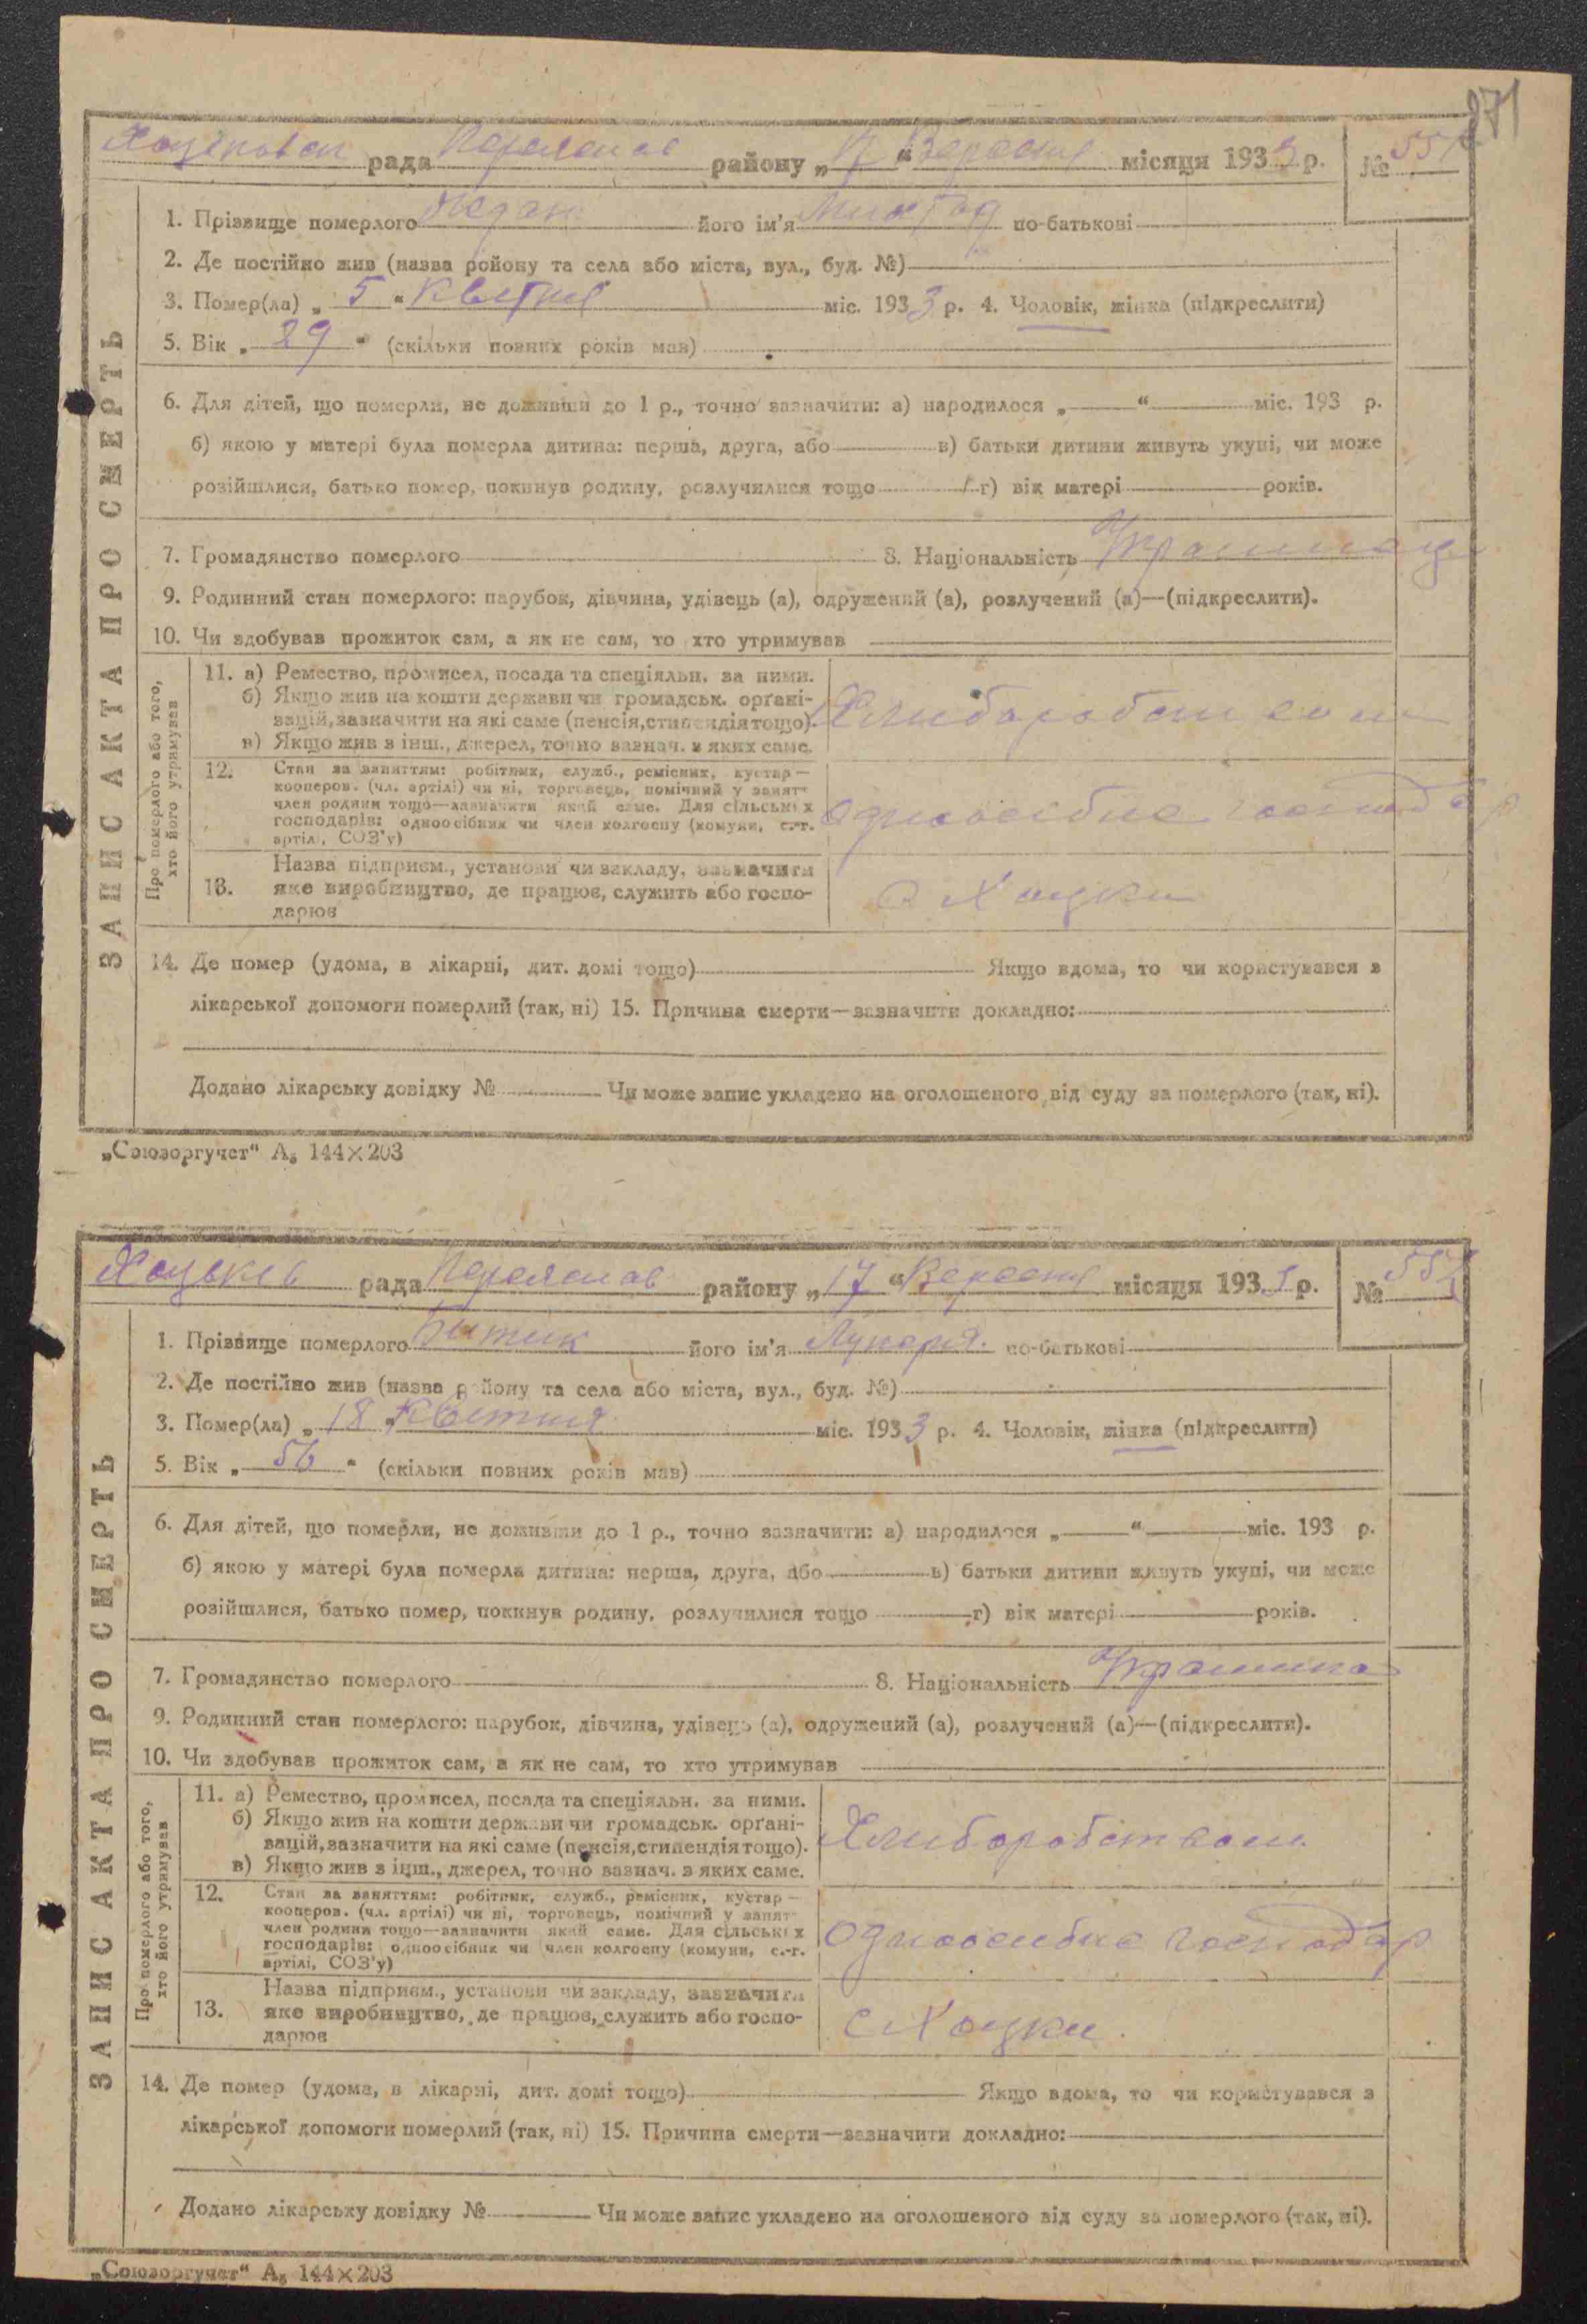 271
рада Переяслав району „17“ Вересня місяця 1933 р. №
1. Прізвище померлого його ім'я по-батькові
2. Де постійно жив (назва району та села або міста, вул., буд. №)
3. Помер(ла) „5“ Квітня міс. 1933 р. 4. Чоловік, жінка (підкреслити)
5. Вік „29“ (скільки повних років мав)
6. Для дітей, що померли, не доживши до 1 р., точно зазначити: а) народилося „ “ міс. 193 р.
б) якою у матері була померла дитина: перша, друга, або в) батьки дитини живуть укупі, чи може
розійшлися, батько помер, покинув родину, розлучилися тощо г) вік матері років.
7. Громадянство померлого 8. Національність Українець
9. Родинний стан померлого: парубок, дівчина, удівець (а), одружений (а), розлучений (а)—(підкреслити).
10. Чи здобував прожиток сам, а як не сам, то хто утримував
ЗАПИС АКТА ПРО СМЕРТЬ
Про померлого або того,
хто його утримував
11. а) Ремество, промисел, посада та спеціяльн. за ними.
б) Якщо жив на кошти держави чи громадськ. орґані-
зацій, зазначити на які саме (пенсія, стипендія тощо).
в) Якщо жив з інш., джерел, точно зазнач. з яких саме.
Хлиборобством
12. Стан за заняттям: робітник, служб., ремісник, кустар—
кооперов. (чл. артілі) чи ні, торговець, помічний у занят-
член родини тощо—зазначити який саме. Для сільських
господарів: одноосібник чи член колгоспу (комуни, с.-г.
артілі, СОЗ'у)
одноосібне господар
13. Назва підприєм., установи чи закладу, зазначити
яке виробництво, де працює, служить або госпо-
дарює
с Хоцки
14. Де помер (удома, в лікарні, дит. домі тощо) Якщо вдома, то чи користувався з
лікарської допомоги померлий (так, ні) 15. Причина смерти—зазначити докладно:
Додано лікарську довідку № Чи може запис укладено на оголошеного від суду за померлого (так, ні).
„Союзоргучет“ А₅ 144×203
Хоцьків рада Переяслав району „17“ Вересня місяця 1933 р. №
1. Прізвище померлого Битик його ім'я Лукарія по-батькові
2. Де постійно жив (назва району та села або міста, вул., буд. №)
3. Помер(ла) „18“ Квітня міс. 1933 р. 4. Чоловік, жінка (підкреслити)
5. Вік „56“ (скільки повних років мав)
6. Для дітей, що померли, не доживши до 1 р., точно зазначити: а) народилося „ “ міс. 193 р.
б) якою у матері була померла дитина: перша, друга, або в) батьки дитини живуть укупі, чи може
розійшлися, батько помер, покинув родину, розлучилися тощо г) вік матері років.
7. Громадянство померлого 8. Національність Украинка
9. Родинний стан померлого: парубок, дівчина, удівець (а), одружений (а), розлучений (а)—(підкреслити).
10. Чи здобував прожиток сам, а як не сам, то хто утримував
ЗАПИС АКТА ПРО СМЕРТЬ
Про померлого або того,
хто його утримував
11. а) Ремество, промисел, посада та спеціяльн. за ними.
б) Якщо жив на кошти держави чи громадськ. орґані-
зацій, зазначити на які саме (пенсія, стипендія тощо).
в) Якщо жив з інш., джерел, точно зазнач. з яких саме.
Хлиборобством
12. Стан за заняттям: робітник, служб., ремісник, кустар—
кооперов. (чл. артілі) чи ні, торговець, помічний у занят-
член родини тощо—зазначити який саме. Для сільських
господарів: одноосібник чи член колгоспу (комуни, с.-г.
артілі, СОЗ'у)
одноосибне господар
13. Назва підприєм., установи чи закладу, зазначити
яке виробництво, де працює, служить або госпо-
дарює
с Хоцки
14. Де помер (удома, в лікарні, дит. домі тощо) Якщо вдома, то чи користувався з
лікарської допомоги померлий (так, ні) 15. Причина смерти—зазначити докладно:
Додано лікарську довідку № Чи може запис укладено на оголошеного від суду за померлого (так, ні).
„Союзоргучет“ А₅ 144×203